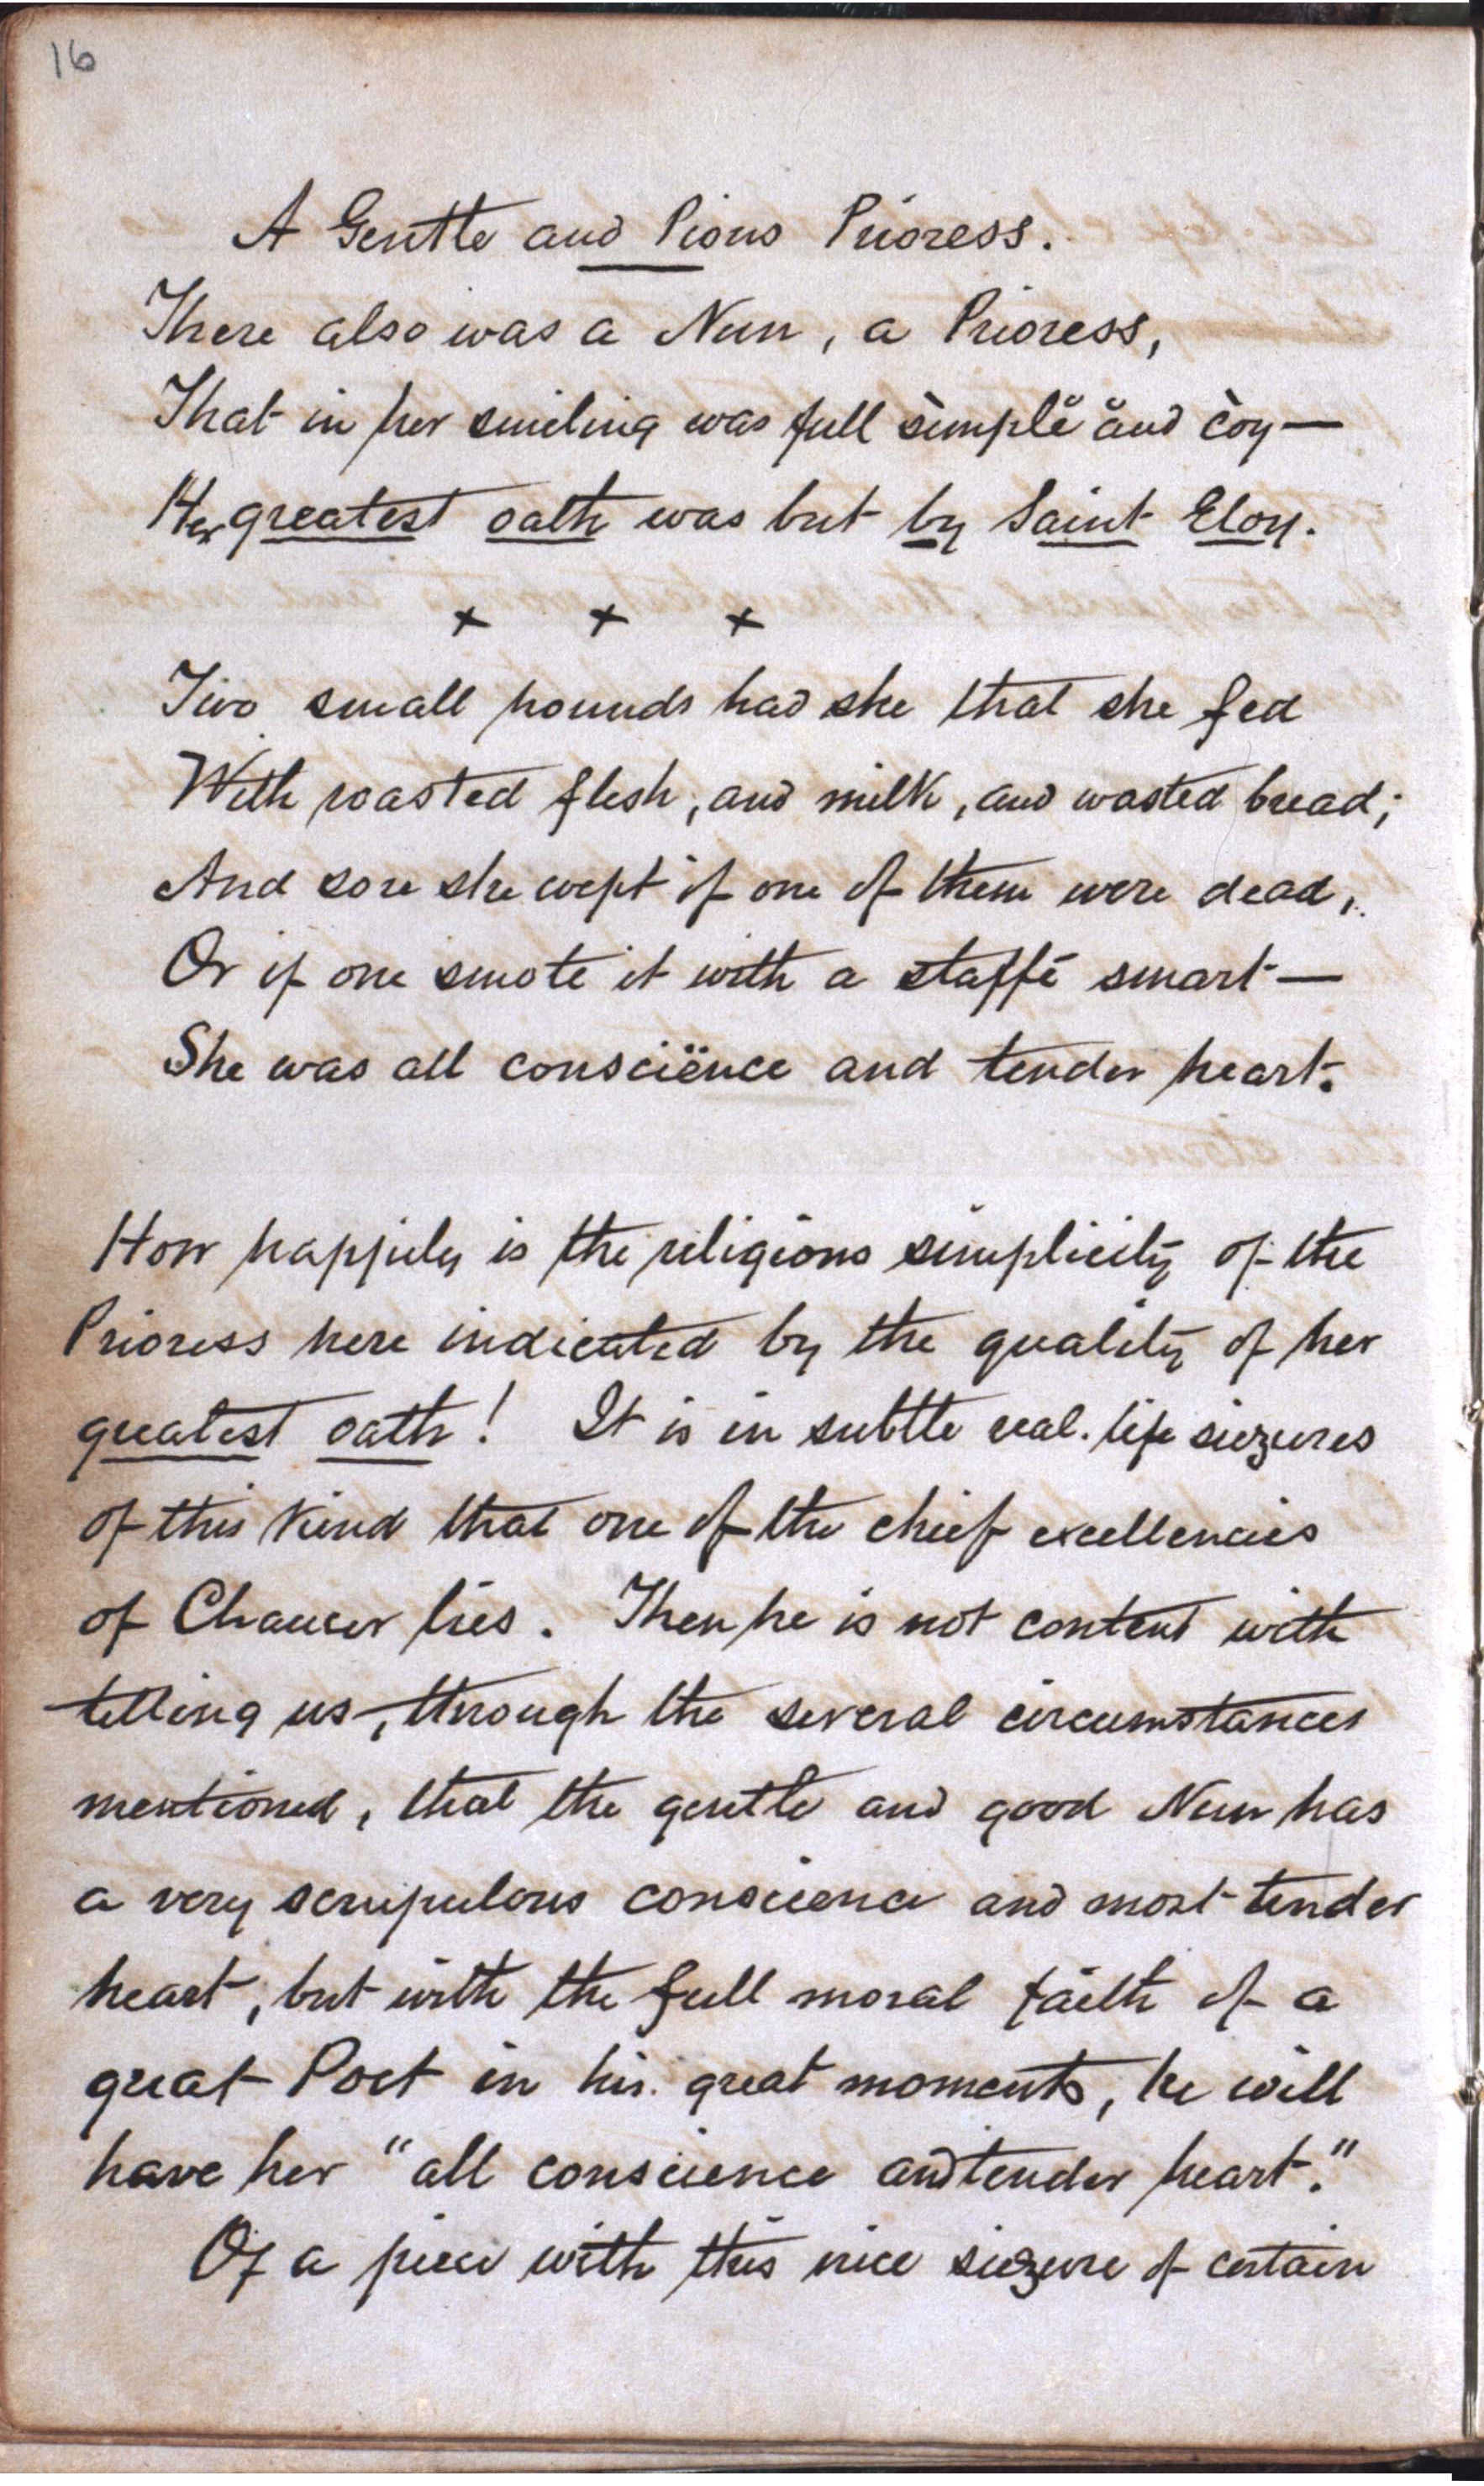 16
A Gentle and Pious Prioress.
There also was a Nun, a Prioress,
That in her smiling was full sìmplĕ ănd còy—
Her greatest oath was but by Saint Eloy.
+ + +
Two small hounds had she that she fed
With roasted flesh, and milk, and wasted bread;
And sore she wept if one of them were dead,
Or if one smote it with a staffé smart—
She was all consciënce and tender heart.
How happily is the religious simplicity of the
Prioress here indicated by the quality of her
greatest oath! It is in subtle real-life seizures
of this kind that one of the chief excellencies
of Chaucer lies. Then he is not content with
telling us, through the several circumstances
mentioned, that the gentle and good Nun has
a very scrupulous conscience and most tender
heart, but with the full moral faith of a
great Poet in his great moments, he will
have her "all conscience and tender heart."
Of a piece with this nice seizure of certain